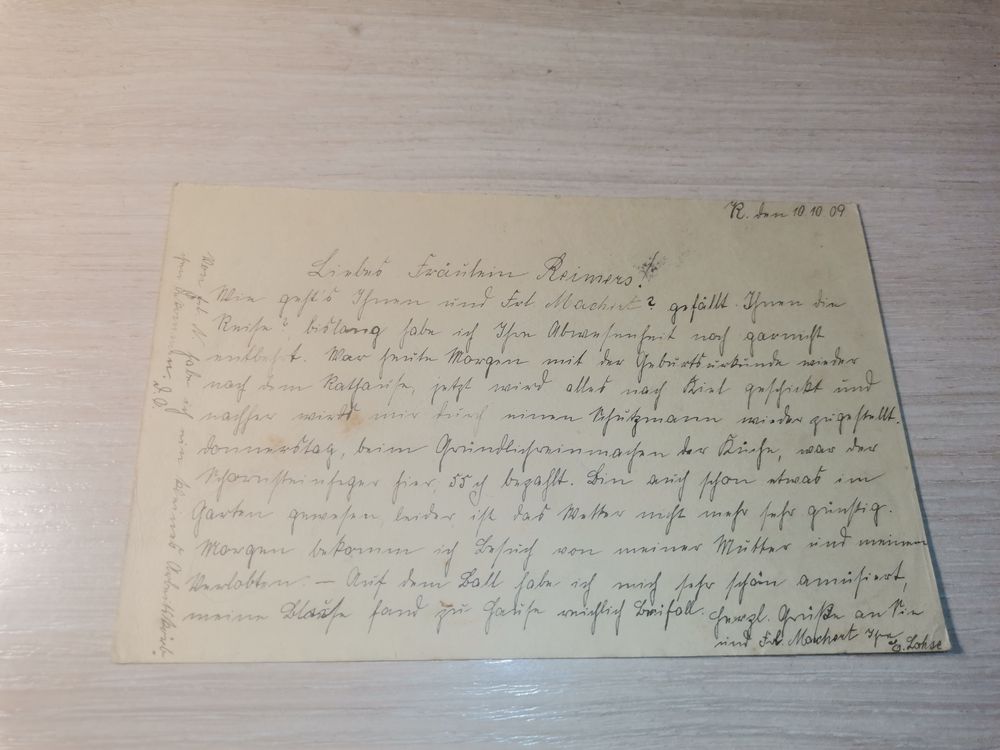 K. den 10.10.09
Liebes Fräulein Reimers!
Wie geht's Ihnen und Frl Machert? gefällt Ihnen die
Reise? bislang habe ich Ihre Abwesenheit noch garnicht
entbehrt. War heute Morgen mit der Geburtsurkunde wieder
nach dem Rathause, jetzt wird alles nach Kiel geschickt und
nachher wirds mir durch einen Schutzmann wieder zugestellt.
Donnerstag, beim Gründlichreinmachen der Küche, war der
Schornsteinfeger hier, 55 ₰ bezahlt. Bin auch schon etwas im
Garten gewesen, leider ist das Wetter nicht mehr sehr günstig.
Morgen bekomm ich Besuch von meiner Mutter und meinem
Verlobten. – Auf dem Ball habe ich mich sehr schön amüsiert,
meine Blouse fand zu Hause reichlich Beifall. Herzl. Grüße an Sie
und Frl. Machert Ihre E. Lohse
Von Frl N. habe ich ein kleines
D. O.